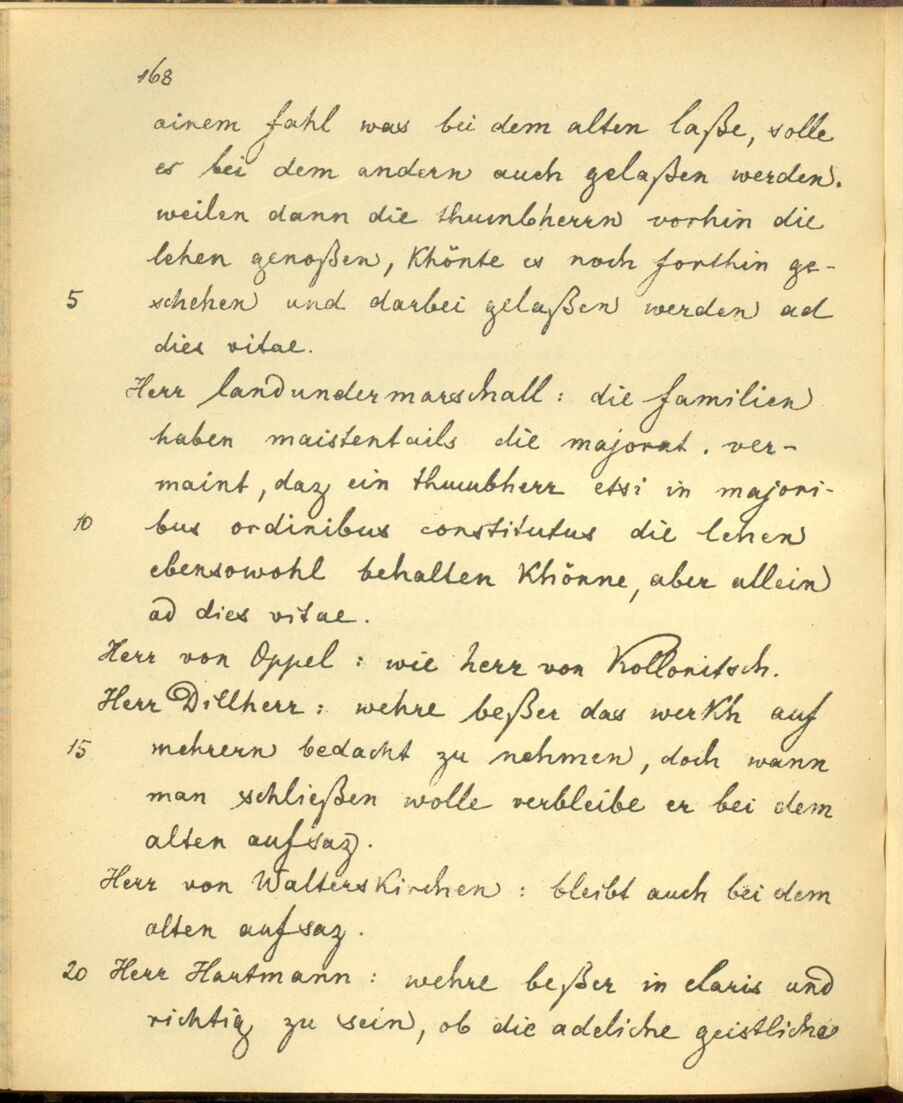 168
ainem fahl was bei dem alten laße, solle
es bei dem andern auch gelaßen werden.
weilen dann die thumbherrn vorhin die
lehen genoßen, khönte es noch forthin ge-
5 schehen und darbei gelaßen werden ad
dies vitae.
Herr landundermarschall: die familien
haben maistentails die majorat. ver-
maint, daz ein thumbherr etsi in majori-
10 bus ordinibus constitutus die lehen
ebensowohl behalten khönne, aber allein
ad dies vitae.
Herr von Oppel: wie herr von Kollonitsch.
Herr Dillherr: wehre beßer das werkh auf
15 mehrern bedacht zu nehmen, doch wann
man schließen wolle verbleibe er bei dem
alten aufsaz.
Herr von Walterskirchen: bleibt auch bei dem
alten aufsaz.
20 Herr Hartmann: wehre beßer in claris und
richtig zu sein, ob die adeliche geistliche